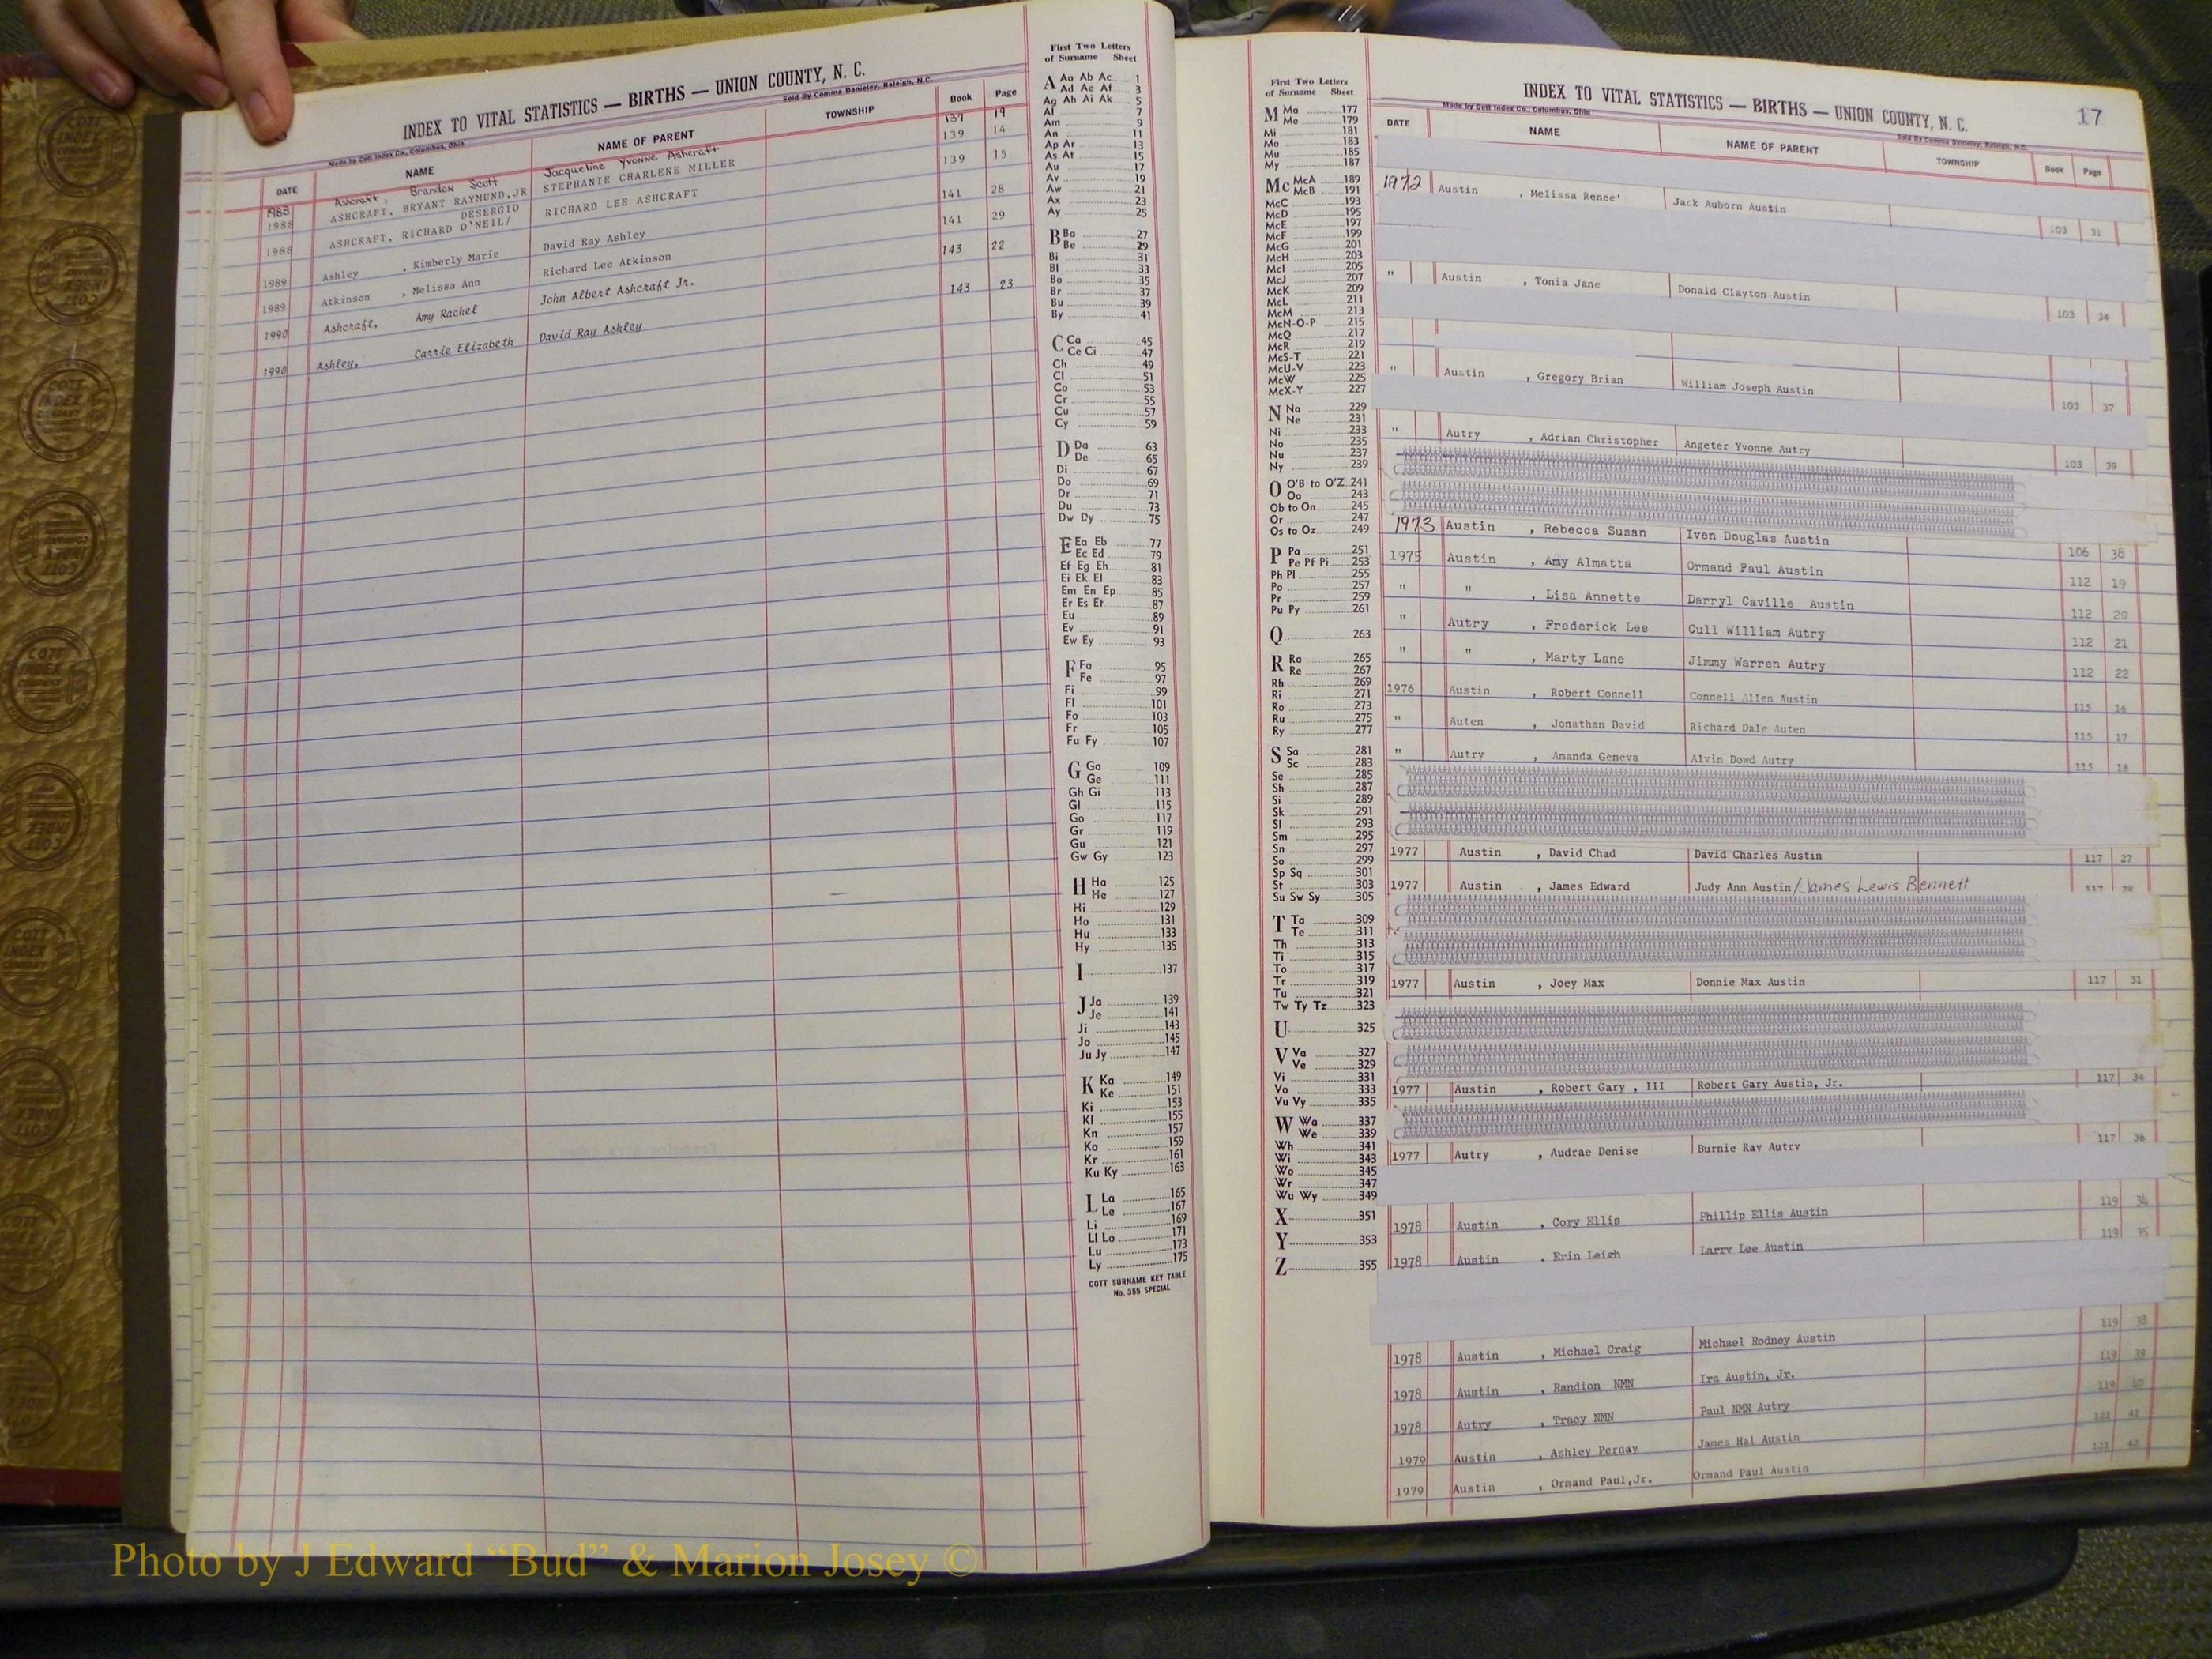 INDEX TO VITAL STATISTICS — BIRTHS — UNION COUNTY, N. C.
Made by Cott Index Co., Columbus, Ohio
Sold By Comma Danieley, Raleigh, N.C.
DATE NAME NAME OF PARENT TOWNSHIP Book Page
1988 Ashcraft, Brandon Scott Jacqueline Yvonne Ashcraft 137 19
1988 ASHCRAFT, BRYANT RAYMUND,JR STEPHANIE CHARLENE MILLER 139 14
DESERGIO
1988 ASHCRAFT, RICHARD O'NEIL/ RICHARD LEE ASHCRAFT 139 15
1989 Ashley , Kimberly Marie David Ray Ashley 141 28
1989 Atkinson , Melissa Ann Richard Lee Atkinson 141 29
1990 Ashcraft, Amy Rachel John Albert Ashcraft Jr. 143 22
1990 Ashley, Carrie Elizabeth David Ray Ashley 143 23
First Two Letters
of Surname Sheet
A Aa Ab Ac 1
Ad Ae Af 3
Ag Ah Ai Ak 5
Al 7
Am 9
An 11
Ap Ar 13
As At 15
Au 17
Av 19
Aw 21
Ax 23
Ay 25
B Ba 27
Be 29
Bi 31
Bl 33
Bo 35
Br 37
Bu 39
By 41
C Ca 45
Ce Ci 47
Ch 49
Cl 51
Co 53
Cr 55
Cu 57
Cy 59
D Da 63
De 65
Di 67
Do 69
Dr 71
Du 73
Dw Dy 75
E Ea Eb 77
Ec Ed 79
Ef Eg Eh 81
Ei Ek El 83
Em En Ep 85
Er Es Et 87
Eu 89
Ev 91
Ew Ey 93
F Fa 95
Fe 97
Fi 99
Fl 101
Fo 103
Fr 105
Fu Fy 107
G Ga 109
Ge 111
Gh Gi 113
Gl 115
Go 117
Gr 119
Gu 121
Gw Gy 123
H Ha 125
He 127
Hi 129
Ho 131
Hu 133
Hy 135
I 137
J Ja 139
Je 141
Ji 143
Jo 145
Ju Jy 147
K Ka 149
Ke 151
Ki 153
Kl 155
Kn 157
Ko 159
Kr 161
Ku Ky 163
L La 165
Le 167
Li 169
Ll Lo 171
Lu 173
Ly 175
COTT SURNAME KEY TABLE
No. 355 SPECIAL
First Two Letters
of Surname Sheet
M Ma 177
Me 179
Mi 181
Mo 183
Mu 185
My 187
Mc McA 189
McB 191
McC 193
McD 195
McE 197
McF 199
McG 201
McH 203
McI 205
McJ 207
McK 209
McL 211
McM 213
McN-O-P 215
McQ 217
McR 219
McS-T 221
McU-V 223
McW 225
McX-Y 227
N Na 229
Ne 231
Ni 233
No 235
Nu 237
Ny 239
O O'B to O'Z 241
Oa 243
Ob to On 245
Or 247
Os to Oz 249
P Pa 251
Pe Pf Pi 253
Ph Pl 255
Po 257
Pr 259
Pu Py 261
Q 263
R Ra 265
Re 267
Rh 269
Ri 271
Ro 273
Ru 275
Ry 277
S Sa 281
Sc 283
Se 285
Sh 287
Si 289
Sk 291
Sl 293
Sm 295
Sn 297
So 299
Sp Sq 301
St 303
Su Sw Sy 305
T Ta 309
Te 311
Th 313
Ti 315
To 317
Tr 319
Tu 321
Tw Ty Tz 323
U 325
V Va 327
Ve 329
Vi 331
Vo 333
Vu Vy 335
W Wa 337
We 339
Wh 341
Wi 343
Wo 345
Wr 347
Wu Wy 349
X 351
Y 353
Z 355
INDEX TO VITAL STATISTICS — BIRTHS — UNION COUNTY, N. C. 17
Made by Cott Index Co., Columbus, Ohio
Sold By Comma Danieley, Raleigh, N.C.
DATE NAME NAME OF PARENT TOWNSHIP Book Page
1972 Austin , Melissa Renee' Jack Auborn Austin 103 31
" Austin , Tonia Jane Donald Clayton Austin 103 34
" Austin , Gregory Brian William Joseph Austin 103 37
" Autry , Adrian Christopher Angeter Yvonne Autry 103 39
1973 Austin , Rebecca Susan Iven Douglas Austin 106 38
1975 Austin , Amy Almatta Ormand Paul Austin 112 19
" " , Lisa Annette Darryl Caville Austin 112 20
" Autry , Frederick Lee Cull William Autry 112 21
" " , Marty Lane Jimmy Warren Autry 112 22
1976 Austin , Robert Connell Connell Allen Austin 115 16
" Auten , Jonathan David Richard Dale Auten 115 17
" Autry , Amanda Geneva Alvin Dowd Autry 115 18
1977 Austin , David Chad David Charles Austin 117 27
1977 Austin , James Edward Judy Ann Austin/James Lewis Bennett 117 28
1977 Austin , Joey Max Donnie Max Austin 117 31
1977 Austin , Robert Gary , III Robert Gary Austin, Jr. 117 34
1977 Autry , Audrae Denise Burnie Ray Autry 117 36
1978 Austin , Cory Ellis Phillip Ellis Austin 119 34
1978 Austin , Erin Leigh Larry Lee Austin 119 35
1978 Austin , Michael Craig Michael Rodney Austin 119 38
1978 Austin , Randion NMN Ira Austin, Jr. 119 39
1978 Autry , Tracy NMN Paul NMN Autry 119 40
1979 Austin , Ashley Pernay James Hal Austin 121 41
1979 Austin , Ormand Paul,Jr. Ormand Paul Austin 121 42
Photo by J Edward “Bud” & Marion Josey ©